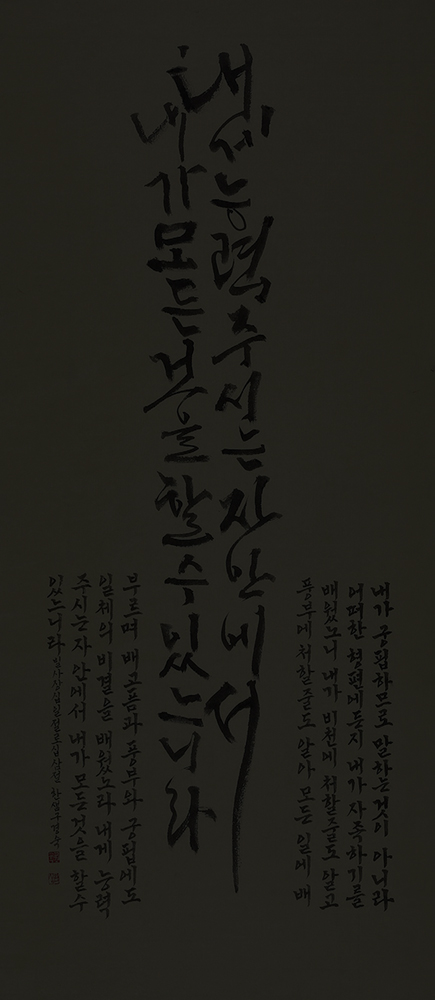 내게 능력 주시는 자 안에서
내가 모든 것을 할 수 있느니라
내가 궁핍하므로 말하는것이 아니라
어떠한 형편에든지 내가 자족하기를
배웠노니 내가 비천에 처할줄도 알고
풍부에 처할줄도 알아 모든 일에 배
부르며 배고픔과 풍부와 궁핍에도
일체의 비결을 배웠노라 내게 능력
주시는 자 안에서 내가 모든것을 할수
있느니라